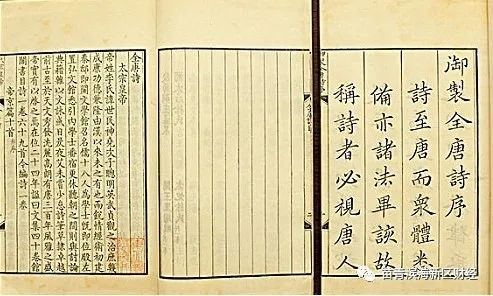 御製全唐詩序
詩至唐而衆體悉
備亦諸法畢該故
稱詩者必視唐人
全唐詩
太宗皇帝
帝姓李氏諱世民神堯次子聰明英武貞觀之治庶幾
成康功德兼隆由漢以來未之有也而銳情經術初建
秦邸即開文學館召名儒十八人為學士既即位殿左
置弘文館悉引內學士番宿更休聽朝之間則與討論
典籍雜以文詠或日昃夜艾未嘗少怠詩筆草隸卓越
前古至於天文秀發沈麗高朗有唐三百年風雅之盛
帝實有以啟之焉在位二十四年諡曰文集四十卷館
閣書目詩一卷六十九首今編詩一卷
帝京篇十首
苗青滨海新区财经